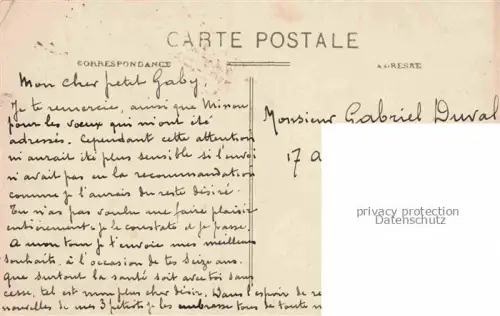 CARTE POSTALE
CORRESPONDANCE
ADRESSE
Mon cher petit Gaby,
Je te remercie, ainsi que Minou
pour les voeux qui m'ont été
adressés. Cependant cette attention
m'aurait été plus sensible si l'envoi
n'avait pas eu la recommandation
comme je l'aurais du reste désiré.
Tu n'as pas voulu me faire plaisir
entièrement je le constate et je passe.
A mon tour je t'envoie mes meilleurs
souhaits, à l'occasion de tes seize ans.
que surtout la santé soit avec toi sans
cesse, tel est mon plus cher désir. Dans l'espoir de re
nouvelles de mes 3 petits je les embrasse tous de toute
Monsieur Gabriel Duval
17
privacy protection
Datenschutz